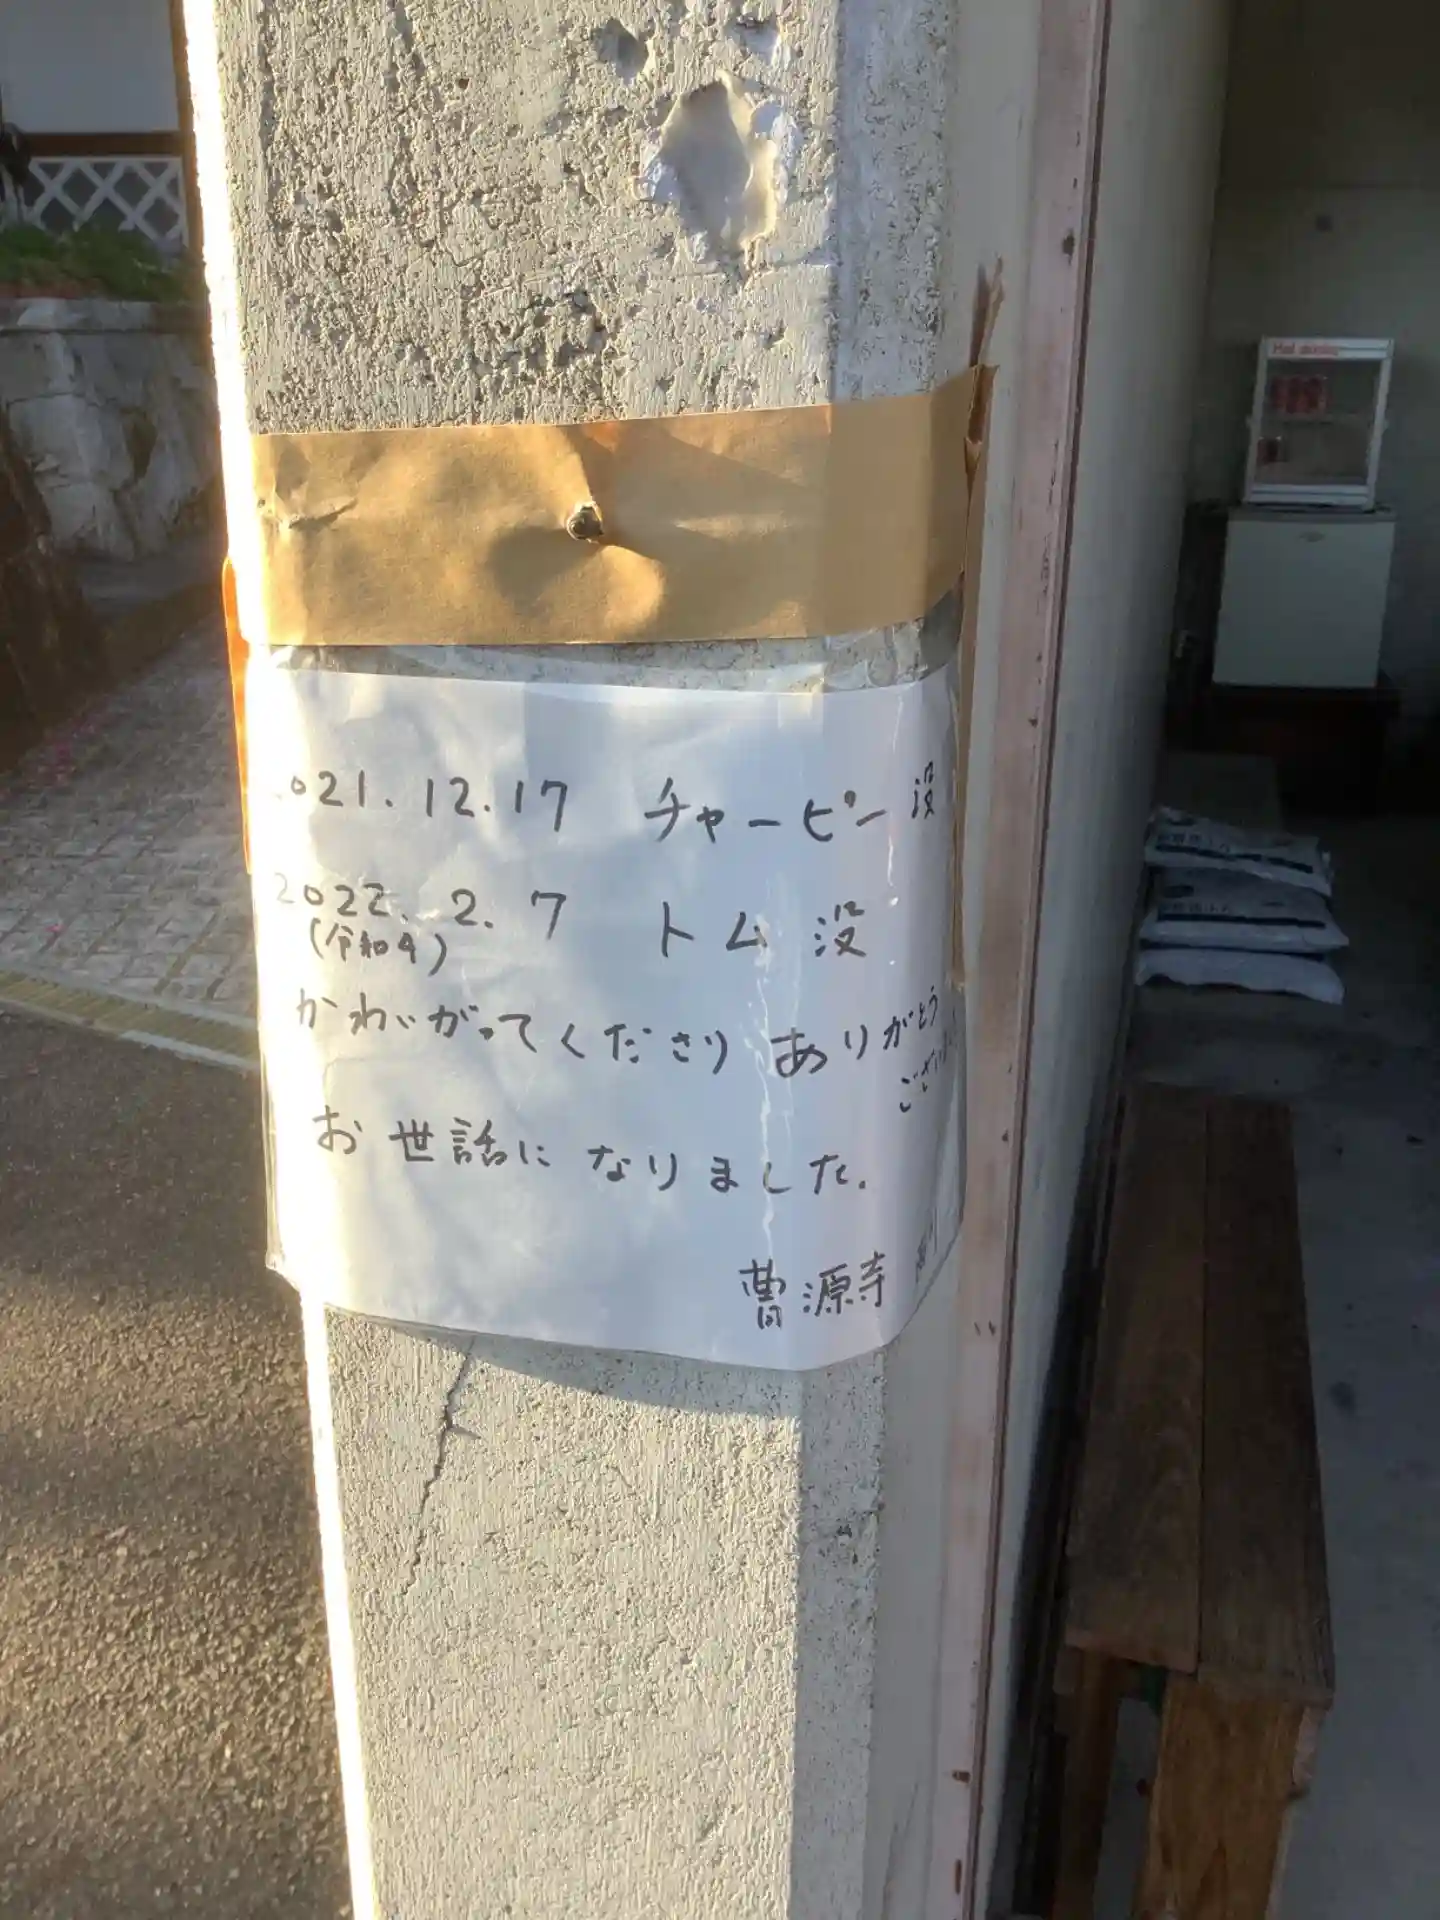 2021.12.17 チャーピー没
2022.2.7 トム没
(令和4)
かわいがってくださり ありがとう
お世話になりました.
曹源寺